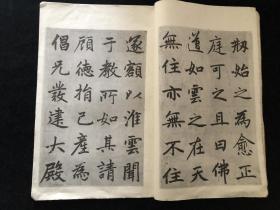 刱始之為愈正
庭可之且曰佛
道如雲之在天
無住亦無不住
遂額以淮雲聞
于教所如其請
顧德指己產為
倡兄叢建大殿